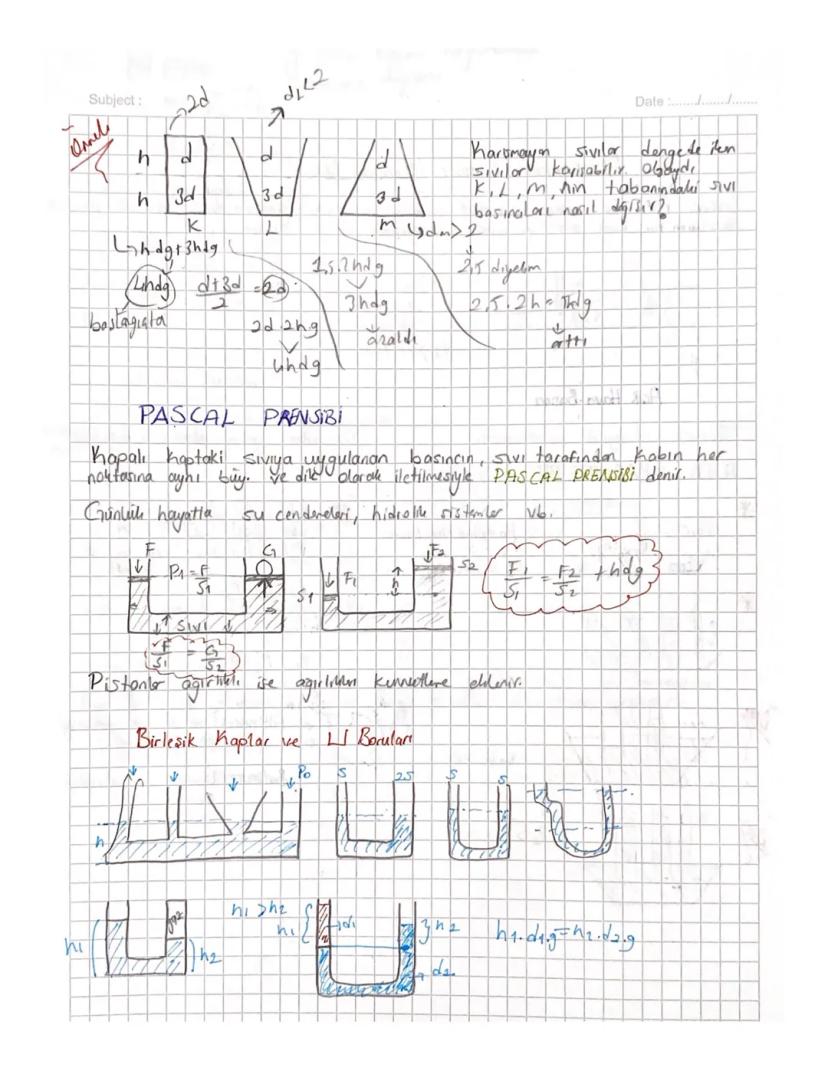 Subject :
Date :......./......./.......
Örnek
2d
dL<2
h d d d
h 3d 3d 3d
K L M
Karışmayan sıvılar dengede iken
sıvılar karışabilir olsaydı
K, L, M, nin tabanındaki sıvı
basınçları nasıl değişir?
↳ dm > 2
↳ hdg+3hdg
4hdg
başlangıçta
d+3d/2 = 2d
2d.2hg
4hdg
1,5.2hdg
3hdg
azaldı
2,5 diyelim
2,5.2h=
arttı
PASCAL PRENSİBİ
Kapalı kaptaki sıvıya uygulanan basıncın, sıvı tarafından kabın her
noktasına aynı büy. ve dik olarak iletilmesiyle PASCAL PRENSİBİ denir.
Günlük hayatta su cendereleri, hidrolik sistemler vb.
F G
P1 = F/S1
sıvı
F/S1 = G/S2
F1 F2
S1 h S2
F1/S1 = F2/S2 + hdg
Pistonlar ağırlıklı ise ağırlıkları kuvvetlere eklenir.
Birleşik Kaplar ve U Boruları
P0 S 2S S S
h
h1 h2
h1 > h2
h1 d1 h2
d2
h1.d1.g=h2.d2.g